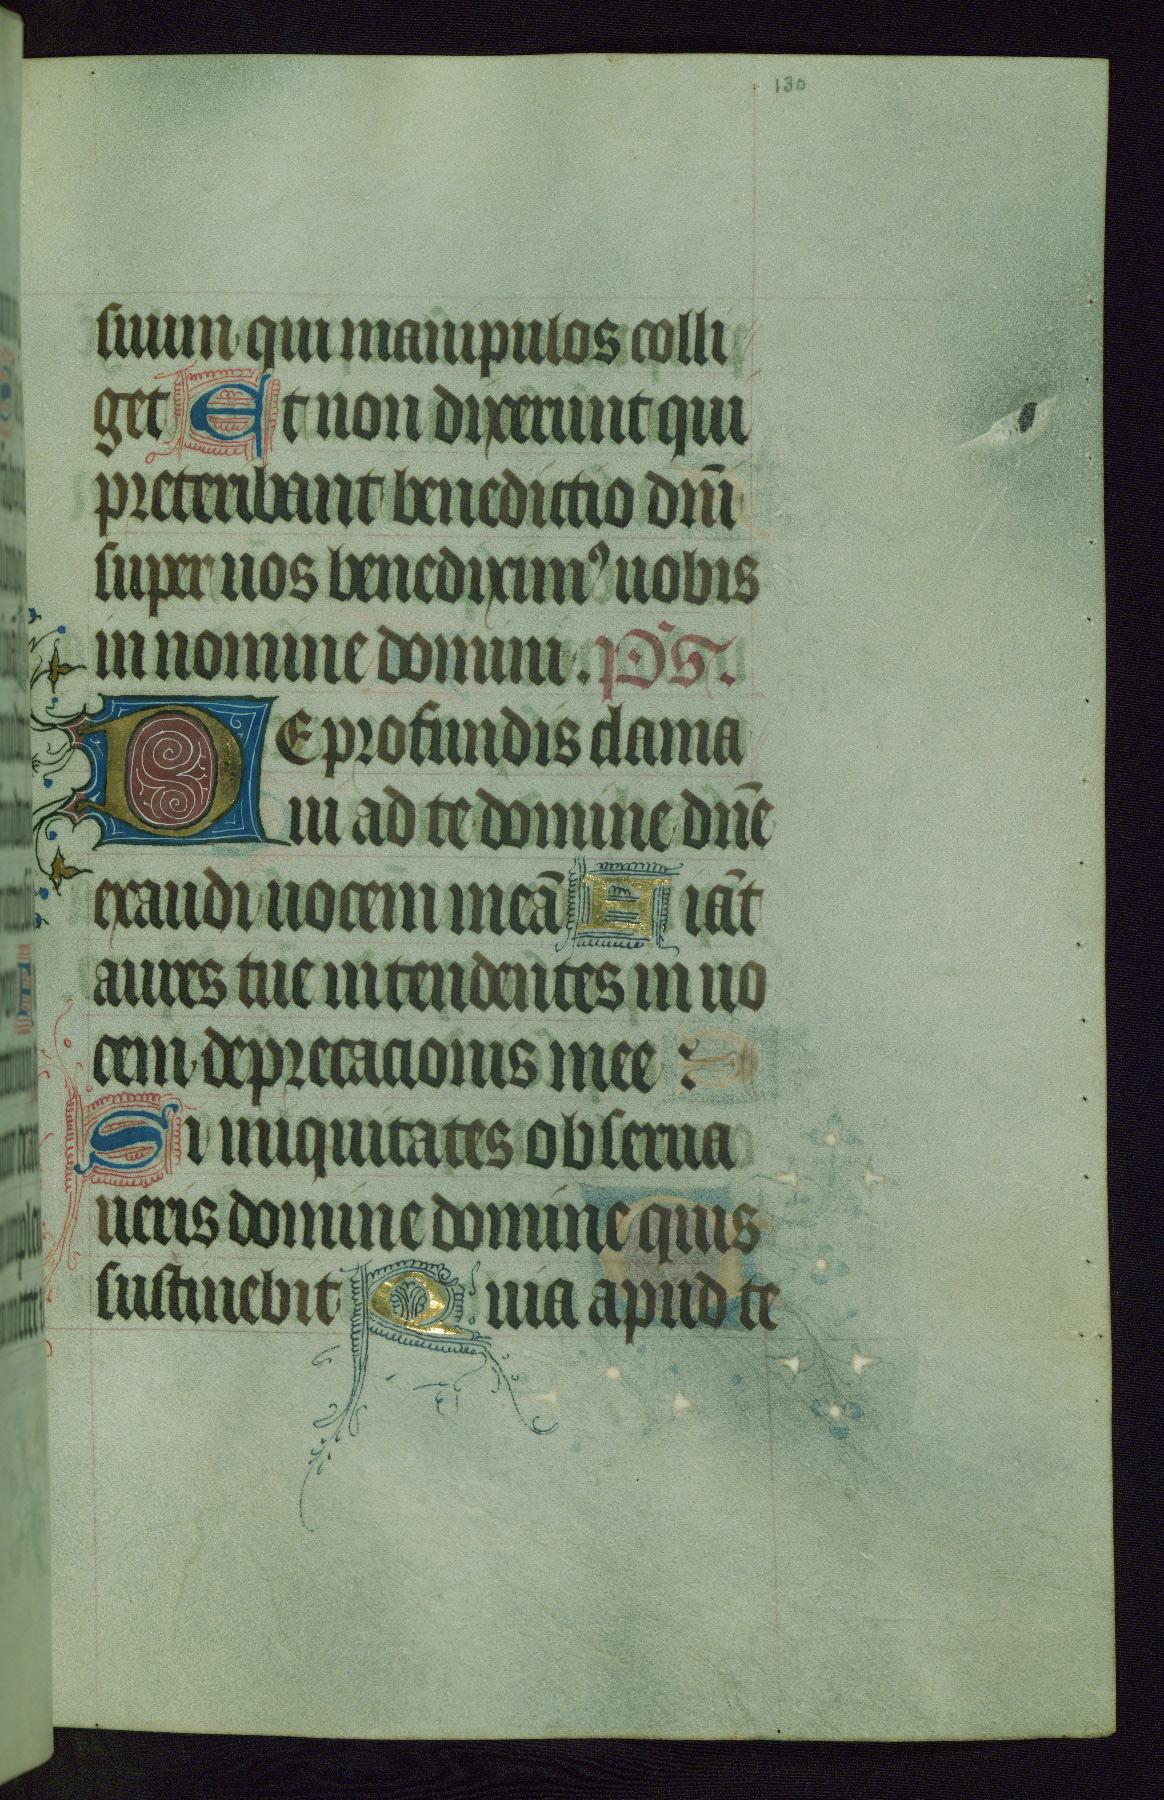 130
suum qui manipulos colli
get Et non dixerunt qui
preteribant benedictio dn̄i
super uos benedixim⁹ uobis
in nomine domini. Ps̄.
De profundis clama
ui ad te domine dn̄e
exaudi uocem meā Fiāt
aures tue intendentes in uo
cem deprecacionis mee :
Si iniquitates obserua
ueris domine domine quis
sustinebit Quia apud te